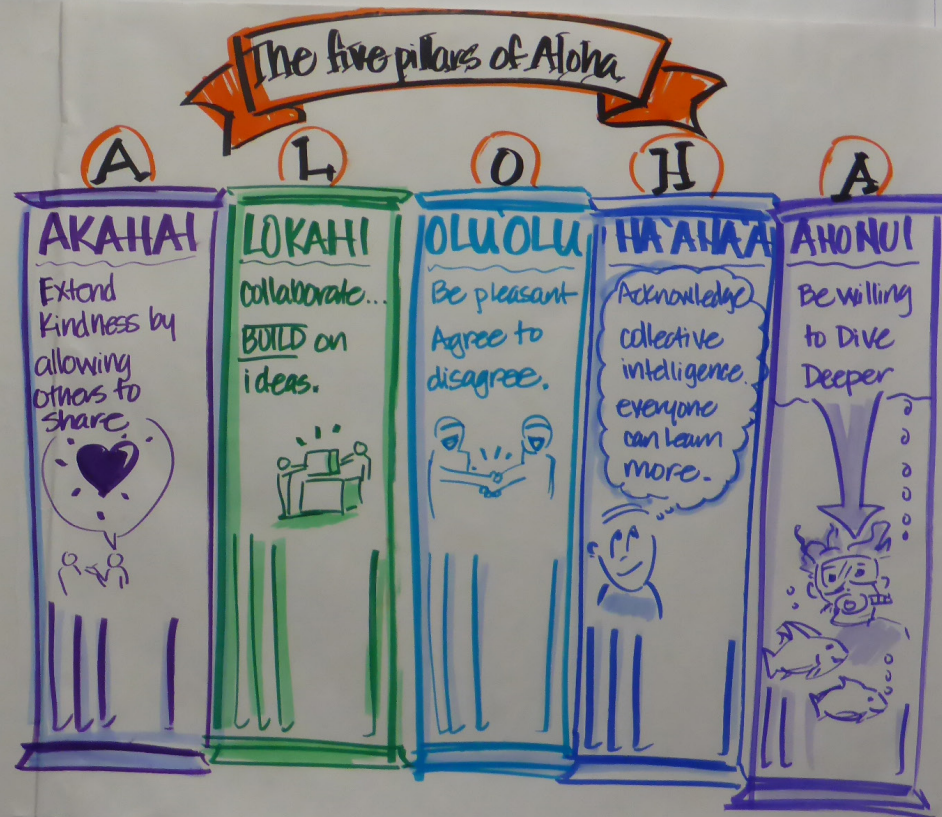 The five pillars of Aloha
A L O H A
AKAHAI
Extend
Kindness by
allowing
others to
share
LOKAHI
collaborate...
BUILD on
ideas.
OLU'OLU
Be pleasant
Agree to
disagree.
HA'AHA'A
Acknowledge
collective
intelligence.
everyone
can learn
more.
AHONUI
Be willing
to Dive
Deeper